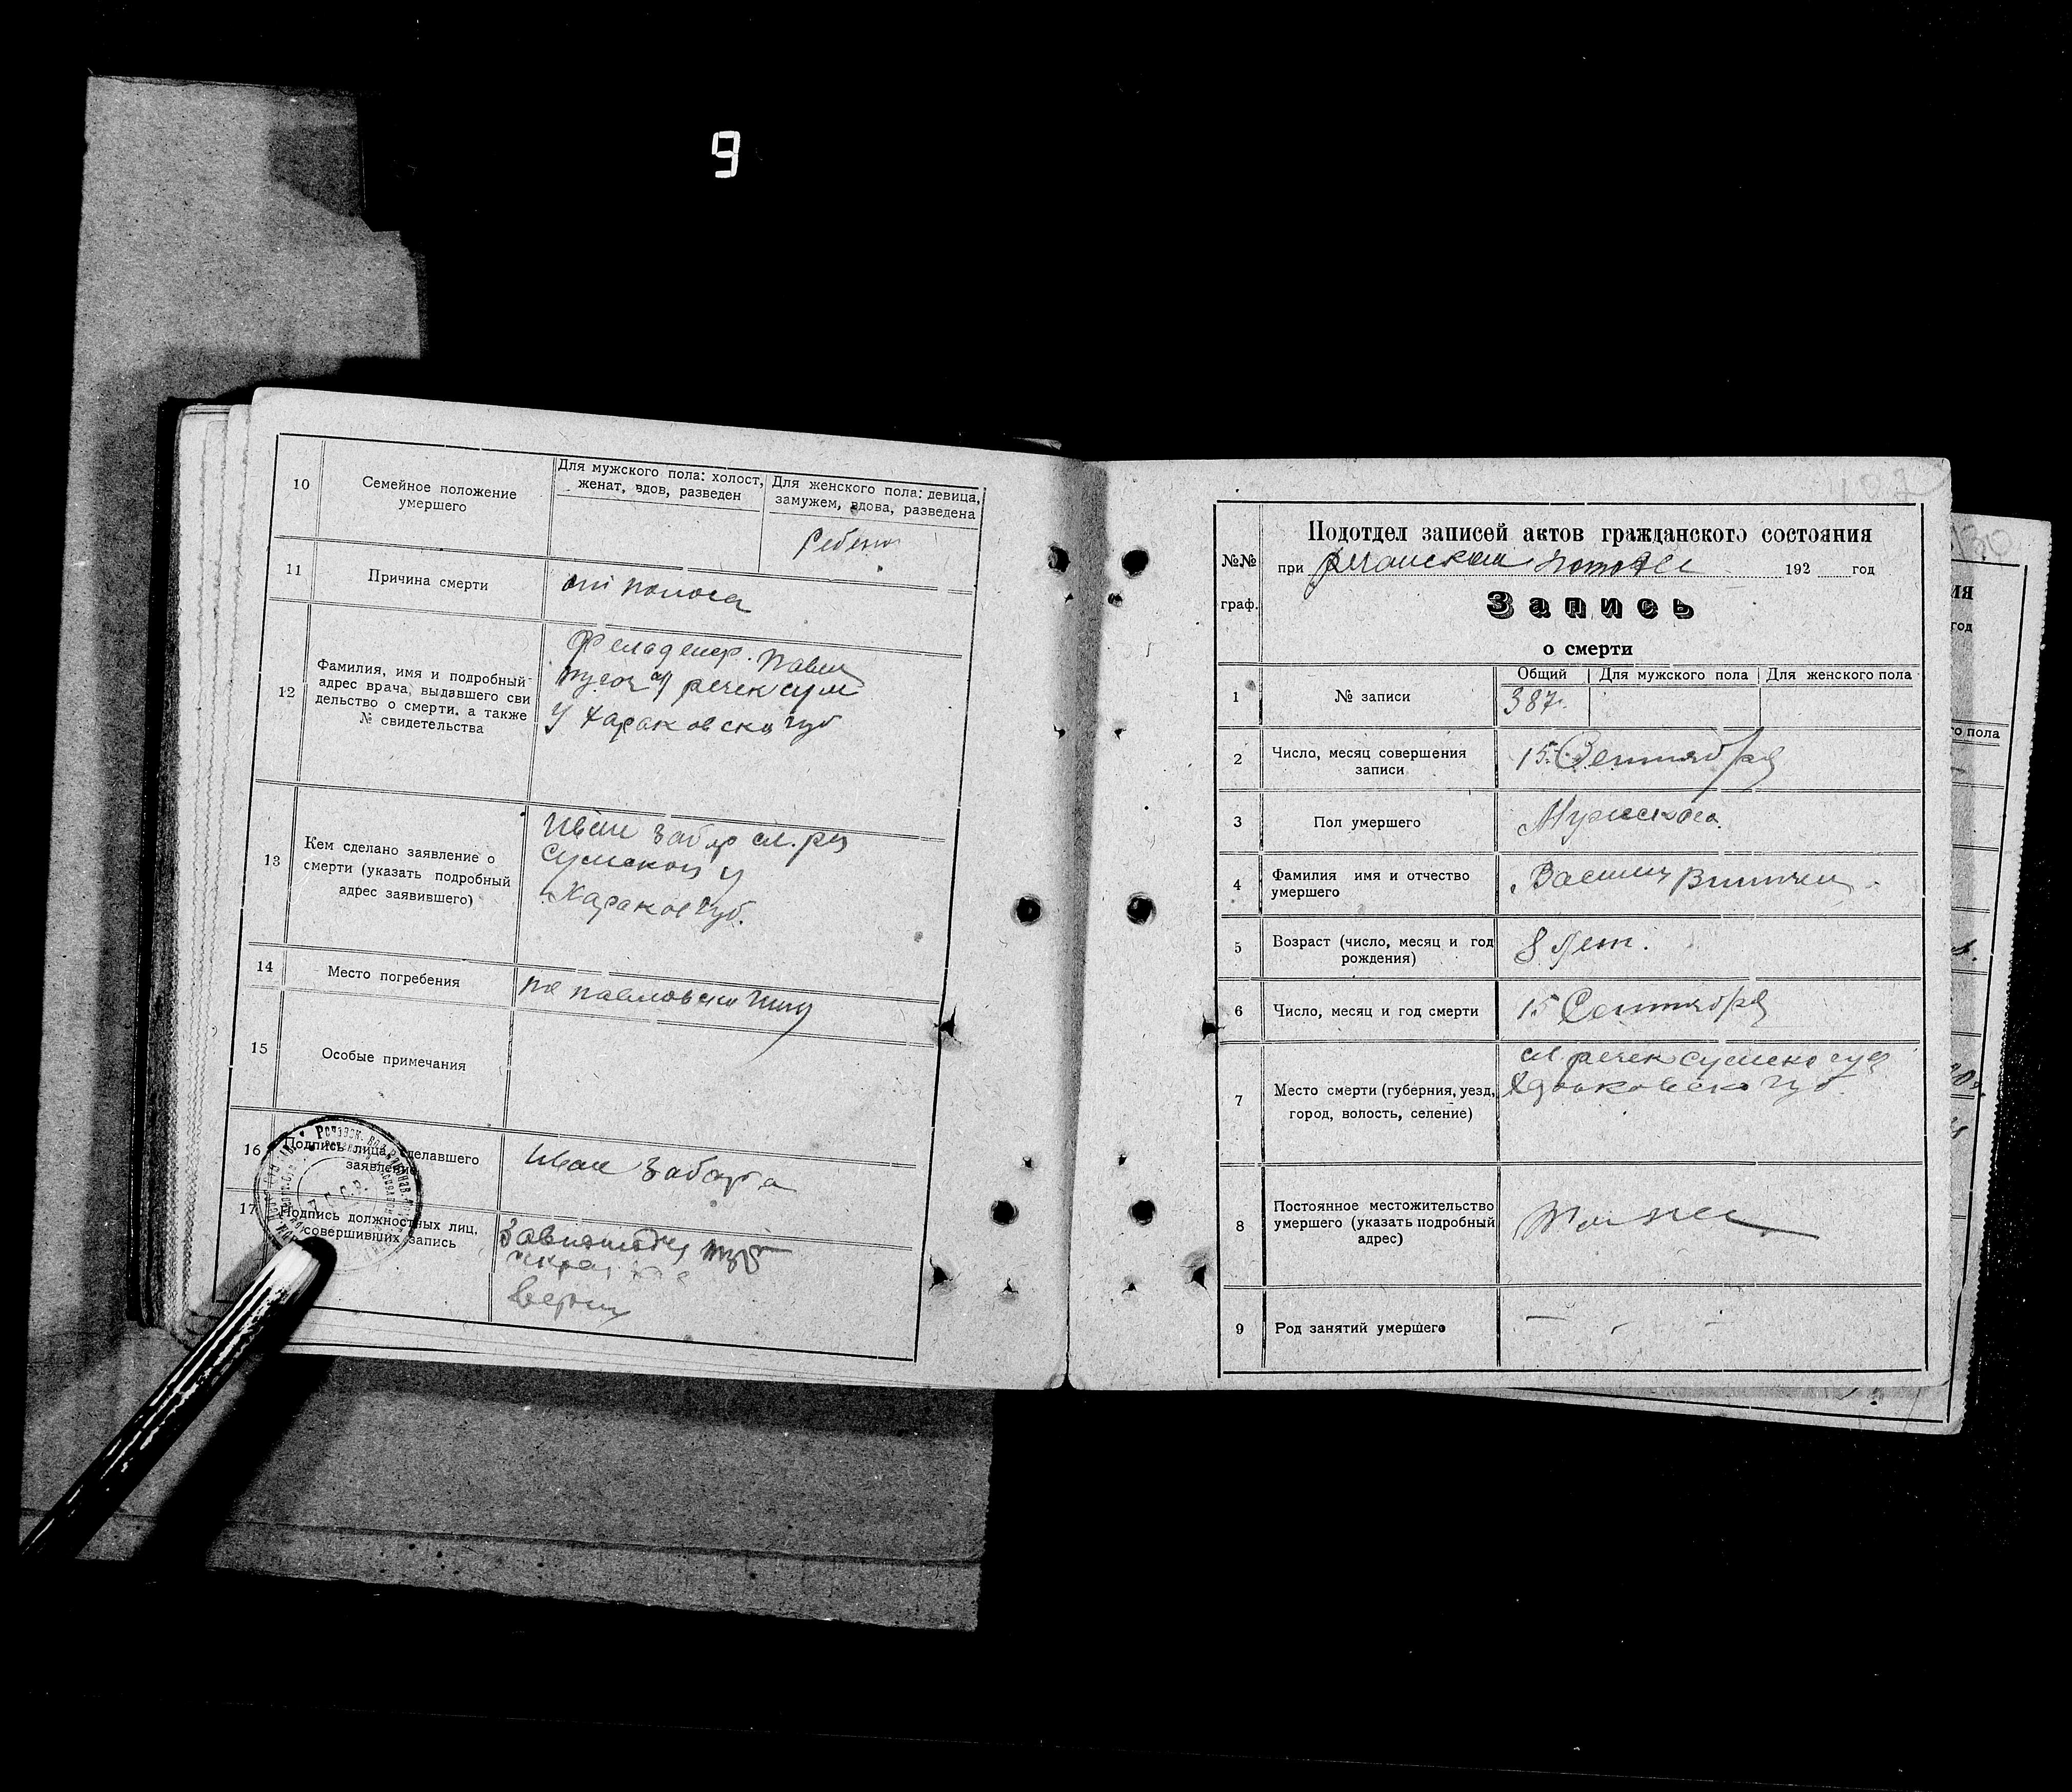 9
10
Семейное положение
умершего
Для мужского пола: холост,
женат, вдов, разведен
Для женского пола: девица,
замужем, вдова, разведена
Ребенок
11
Причина смерти
от поноса
12
Фамилия, имя и подробный
адрес врача, выдавшего сви
детельство о смерти, а также
№ свидетельства
Фельдшер. Павел
речек сум
у Хараковска губ
13
Кем сделано заявление о
смерти (указать подробный
адрес заявившего)
Иван сл. реч
Сумской у
Хараков губ.
14
Место погребения
на
15
Особые примечания
16
Подпись лица, сделавшего
заявление
Иван Забара
17
Подпись должностных лиц,
совершивших запись
Верны
Подотдел записей актов гражданского состояния
№№
граф.
при 192 год
Запись
о смерти
1
№ записи
Общий
Для мужского пола
Для женского пола
387
2
Число, месяц совершения
записи
15 Сентября
3
Пол умершего
Мужского.
4
Фамилия имя и отчество
умершего
Василий
5
Возраст (число, месяц и год
рождения)
8 Лет.
6
Число, месяц и год смерти
15 Сентября
7
Место смерти (губерния, уезд,
город, волость, селение)
сл речек сумско
губ
8
Постоянное местожительство
умершего (указать подробный
адрес)
Тоже
9
Род занятий умершего
ия
год
го пола